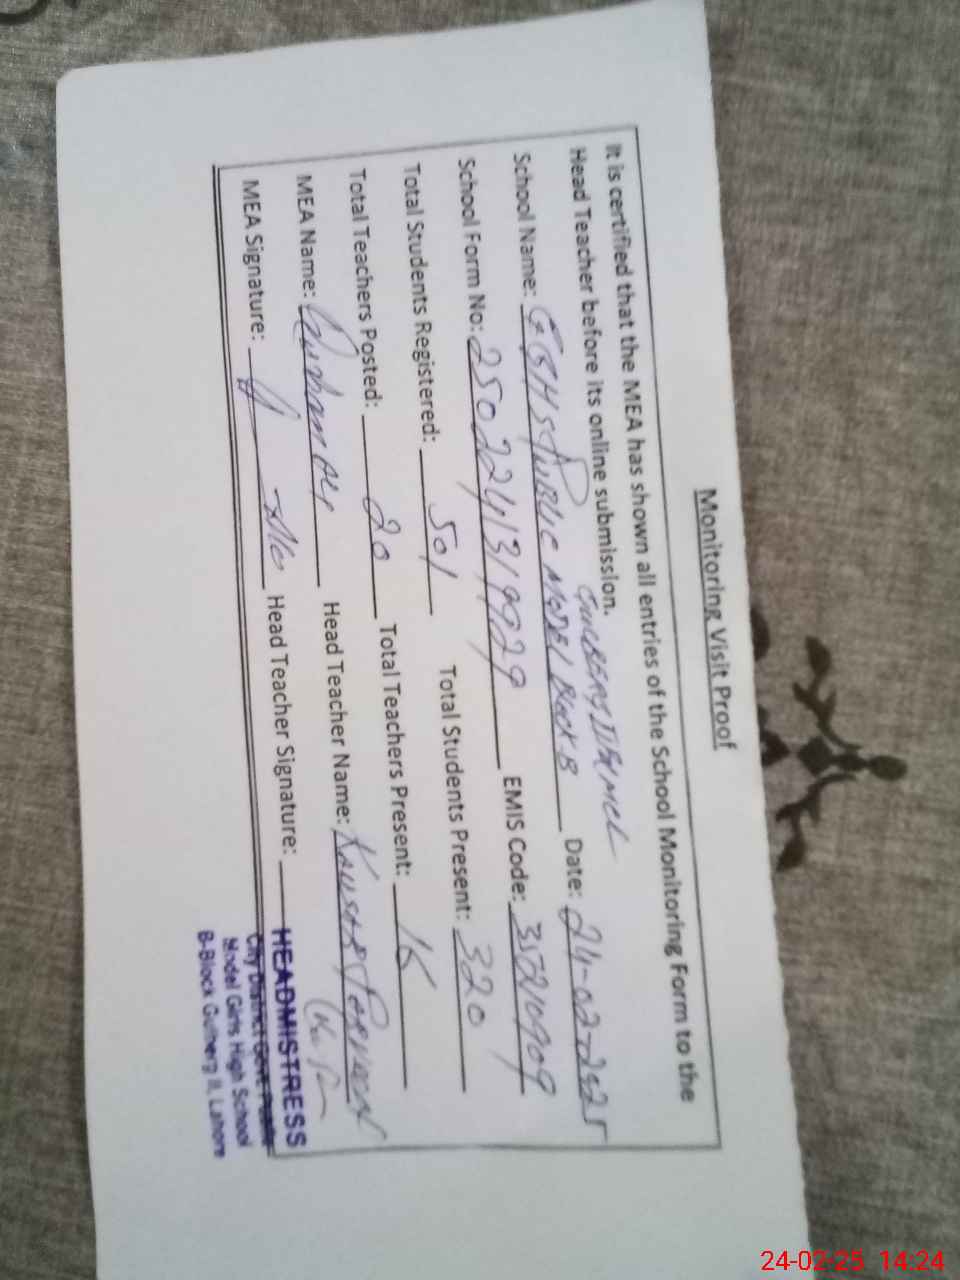 Monitoring Visit Proof
It is certified that the MEA has shown all entries of the School Monitoring Form to the
Head Teacher before its online submission. GULBERG II
School Name: GGHS PUBLIC MODEL BLOCK B Date: 24-02-2025
School Form No: EMIS Code: 35210909
Total Students Registered: 501 Total Students Present: 320
Total Teachers Posted: 20 Total Teachers Present:
MEA Name: Head Teacher Name: Kausar Perveen
MEA Signature: Head Teacher Signature:
HEADMISTRESS
City District Govt
Model Girls High School
B-Block Gulberg II, Lahore
24-02-25 14:24